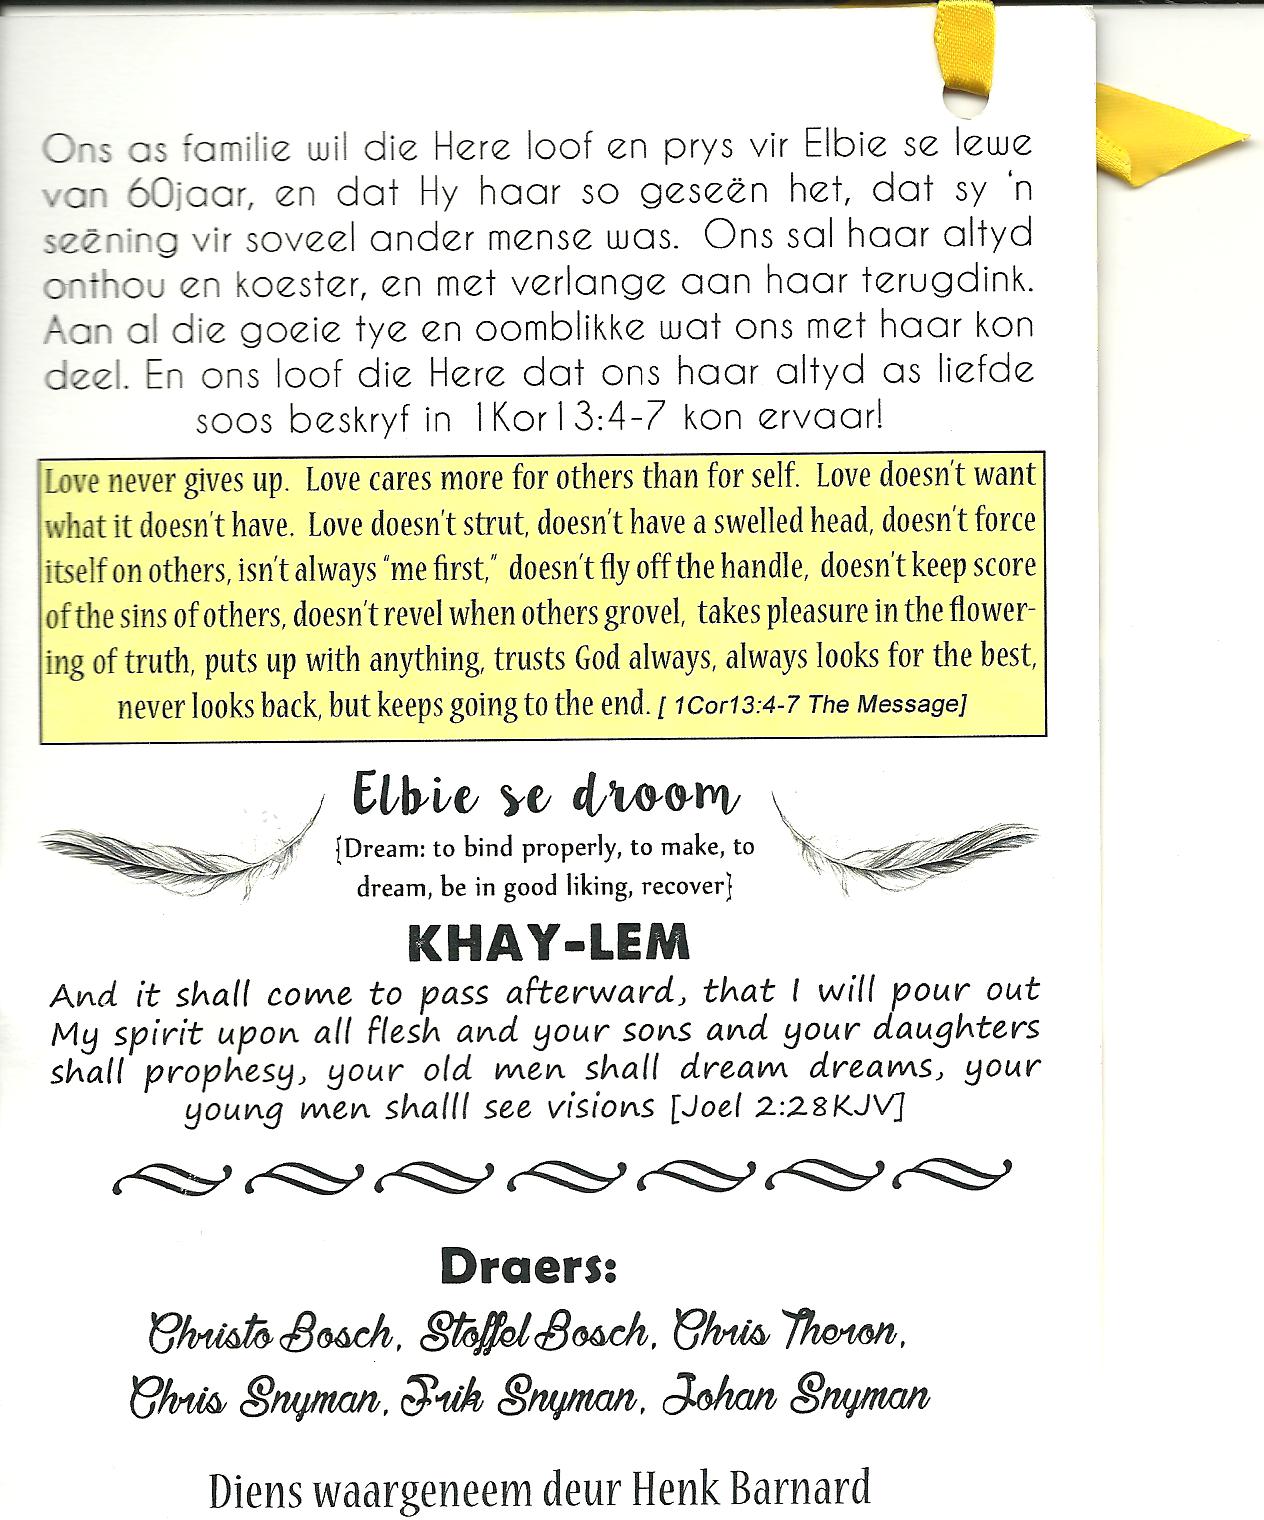 Ons as familie wil die Here loof en prys vir Elbie se lewe
van 60jaar, en dat Hy haar so geseën het, dat sy 'n
seëning vir soveel ander mense was. Ons sal haar altyd
onthou en koester, en met verlange aan haar terugdink.
Aan al die goeie tye en oomblikke wat ons met haar kon
deel. En ons loof die Here dat ons haar altyd as liefde
soos beskryf in 1Kor13:4-7 kon ervaar!
Love never gives up. Love cares more for others than for self. Love doesn't want
what it doesn't have. Love doesn't strut, doesn't have a swelled head, doesn't force
itself on others, isn't always "me first," doesn't fly off the handle, doesn't keep score
of the sins of others, doesn't revel when others grovel, takes pleasure in the flower-
ing of truth, puts up with anything, trusts God always, always looks for the best,
never looks back, but keeps going to the end. [ 1Cor13:4-7 The Message]
Elbie se droom
{Dream: to bind properly, to make, to
dream, be in good liking, recover}
KHAY-LEM
And it shall come to pass afterward, that I will pour out
My spirit upon all flesh and your sons and your daughters
shall prophesy, your old men shall dream dreams, your
young men shalll see visions [Joel 2:28KJV]
Draers:
Christo Bosch, Stoffel Bosch, Chris Theron,
Chris Snyman, Frik Snyman, Johan Snyman
Diens waargeneem deur Henk Barnard